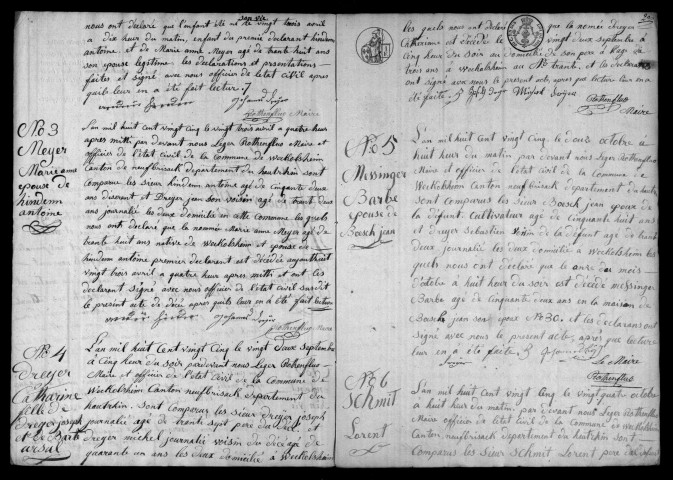 san vie
nous ont déclaré que l'enfant été né le vingt trois avril
a dix heur du matin, enfant du premie declarant hindenn
antoine et de Marie anne Meyer agé de trante huit ans
son epouse legitime. les declarations et presentations
faites et signé avec nous officier de l'etat Civil apres
quils leur en a été fait lectur.
Rothenflus Maire
No 3
Meyer
Marie anne
epouse de
hindenn
antoine
L'an mil huit cent vingt Cinq le vingt trois avril a quatre heur
apres mitti par devant nous Leger Rothenflus Maire et
officier de l'état Civil de la Commune de Weckolsheim
Canton de neufbrisack departement du hautrhin sont
Comparus les sieur hindenn antoine agé de Cinquante deux
ans et Dreyer jean son voisin agé de trante deux
ans journalié les deux domicilié a Cette Commune les quels
nous ont declare que la nommée Marie anne Meyer agé de
trante huit ans native de Weckolsheim et epouse de
hindenn antoine premier declarent est décédé
vingt trois avril a quatre heur apres mitti et ont les
declarant signé avec nous officier de l'état Civil susdit
le present acte de décé apres quils leur en a été fait lecture
Rothenflus Maire
No 4
Dreyer
Catharine
fille de
Dreyer joseph
et de Barbe
L'an mil huit Cent vingt Cinq le vingt deux septembre
a Cinq heur du soir pardevent nous Leger Rothenflus
Maire et officier de l'etat Civil de la Commune de
Weckolsheim Canton neufbrisack departement du
hautrhin. sont Comparus les sieur dreyer joseph
journalie agé de trante sept pere du décé et
dreyer michel journalié voisin du décé agé de
quarante un ans les deux domicilié a Weckolsheim
les quels nous ont declare que la nomée dreyer
Catharine est décédé le vingt deux septembre a
Cinq heur du soir au domicile de son pere a l'age de
trois ans a Weckolsheim au No trante. et les declarants
ont signé avec nous le present acte, apres que lectur leur en a
été faite.
Rothenflus
Maire
No 5
Messinger
Barbe
epouse de
Bosch jean
L'an mil huit Cent vingt Cinq le douze octobre a
huit heur du matin, par devant nous Leger Rothenflus
Maire et officier de l'état Civil de la Commune de
Weckolsheim Canton neufbrisack departement du hautrhin
sont Comparus les sieur Bosch jean epoux de
la defunt. Cultivateur agé de Cinquante huit ans
et dreyer Sebastien voisin de la defunt agé de trante
deux journalié les deux domicilié a Weckolsheim les
quels nous ont déclaré que le onze des mois
d'octobre a huit heur du soir est décédé messinger
Barbe agé de Cinquante deux ans en la maison de
Bosch jean son epoux No 30. et les declarans ont
signé avec nous le present acte, apres que lecture
leur en a été faite
Le Maire
Rothenflus
No 6
Schmit
Lorent
L'an mil huit Cent vingt Cinq le vingt quatre octobre
a huit heur du matin, par devant nous Leger Rothenflus
Maire officier de l'état Civil de la Commune de Weckolsheim
Canton neufbrisack departement du hautrhin sont
Comparus les sieur Schmit Lorent pere du defunt